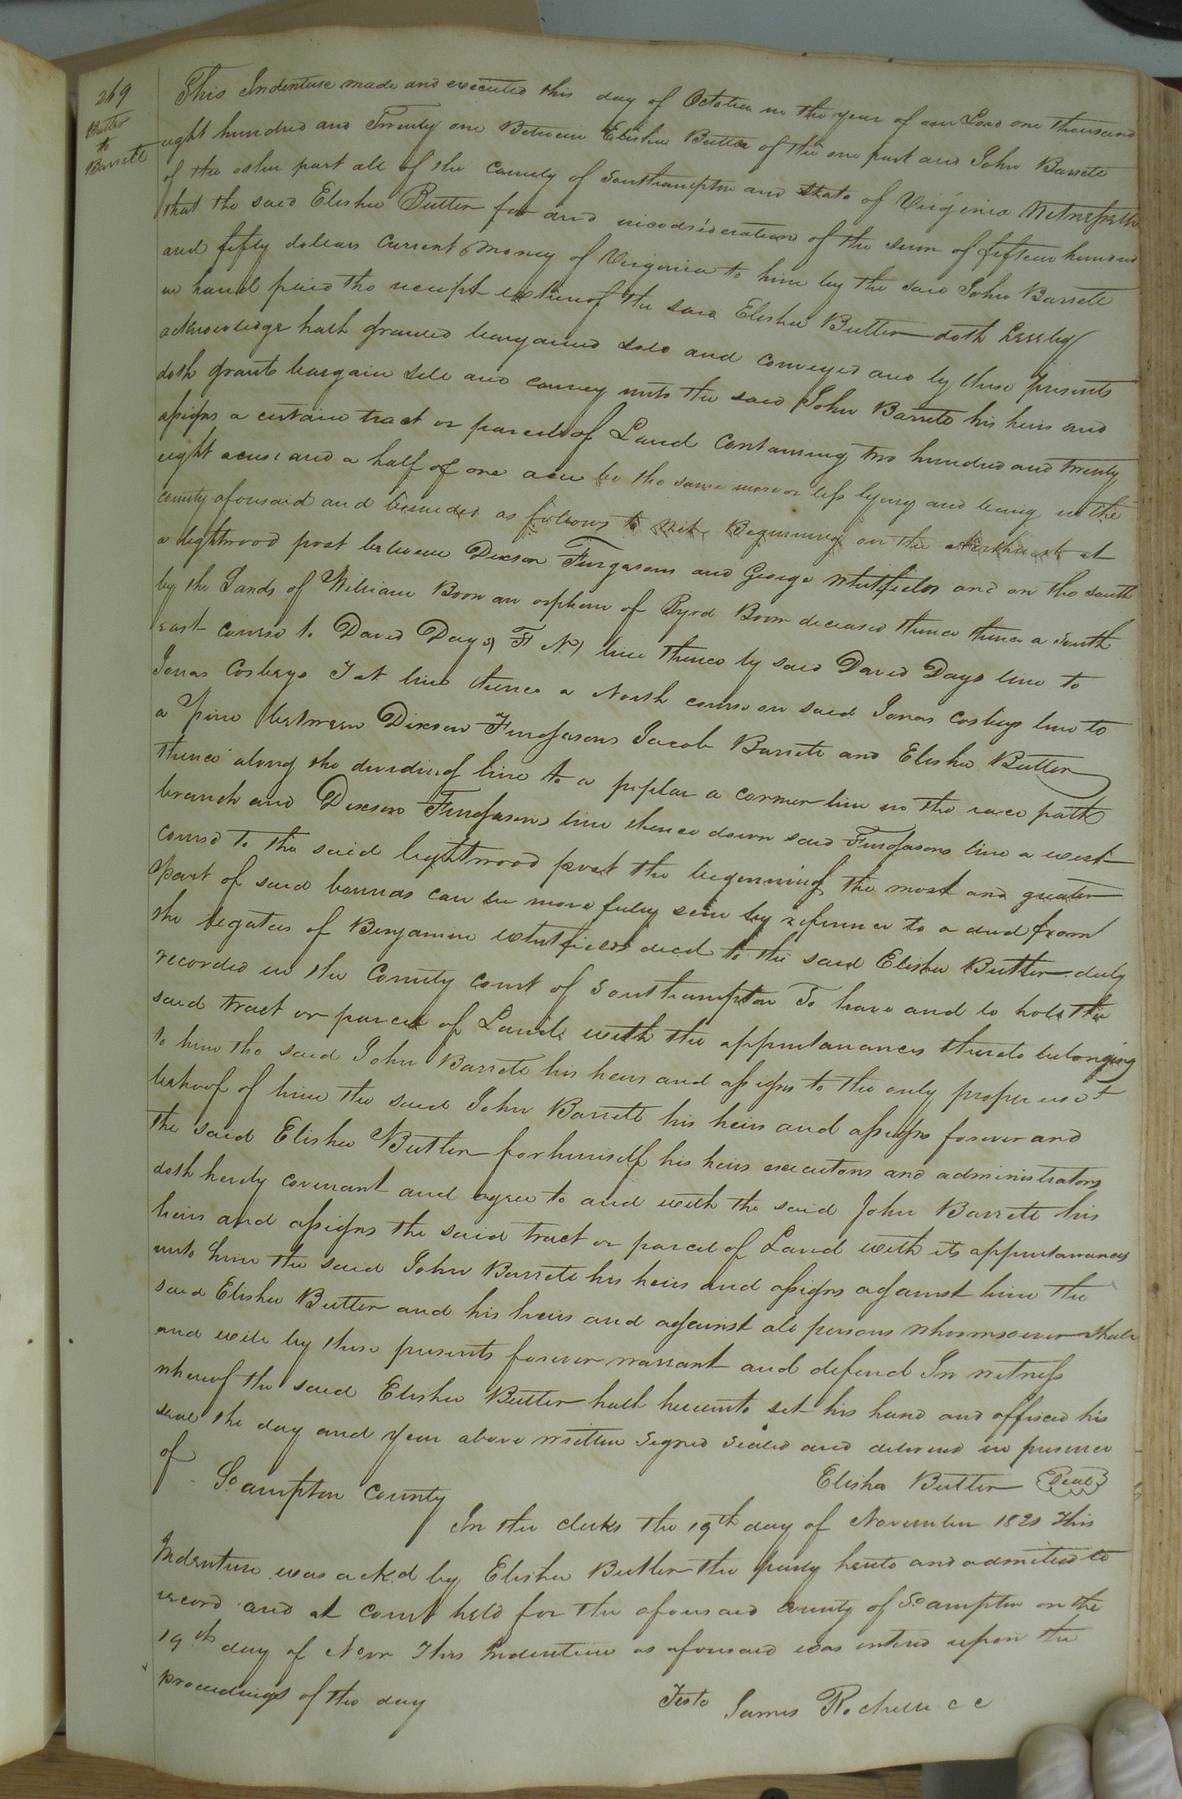 269
Butler
to
Barrett
This Indenture made and executed this day of October in the year of our Lord one thousand
eight hundred and Twenty one Between Elisha Butler of the one part and John Barrett
of the other part all of the County of Southampton and State of Virginia Witnesseth
that the said Elisha Butler for and inconsideration of the sum of fifteen hundred
and fifty dollars Current Money of Virginia to him by the said John Barrett
in hand paid the receipt whereof the said Elisha Butler doth hereby
acknowledge hath granted bargained sold and conveyed and by these presents
doth grant bargain sell and convey unto the said John Barrett his heirs and
assigns a certain tract or parcel of Land Containing two hundred and twenty
eight acres and a half of one acre be the same more or less lying and being in the
county aforesaid and bounded as follows to wit, Beginning on the at
a lightwood post between Dixson Furgasons and George Whitfields and on the south
by the Lands of William Boon an orphan of Byrd Boon deceased thence thence a South
east course to David Days line thence by said David Days line to
Jonas Cosbeys line thence a North course on said Jonas Cosbeys line to
a Pine between Dixson Furgasons Jacob Barrett and Elisha Butler
thence along the dividing line to a poplar a corner line in the race path
branch and Dixson Furgasons line thence down said Furgasons line a west
course to the said lightwood post the beginning the most and greater
Part of said bounds can be more fuley seen by referrence to a deed from
the legatees of Benjamin Whitfield decd to the said Elisha Butler duly
recorded in the County Court of Southampton To have and to hold the
said tract or parcel of Land with the appurtanances thereto belonging
to him the said John Barrett his heirs and assigns to the only proper use &
behoof of him the said John Barrett his heirs and assigns forever and
the said Elisha Butler for himself his heirs executors and administrators
doth hereby covenant and agree to and with the said John Barrett his
heirs and assigns the said tract or parcel of Land with its appurtanances
unto him the said John Barrett his heirs and assigns against him the
said Elisha Butler and his heirs and against all persons whomsoever shall
and will by these presents forever warrant and defend In witness
whereof the said Elisha Butler hath hereunto set his hand and affixed his
seal the day and Year above written Signed Sealed and delivered in presence
of Elisha Butler Seal
So ampton County
In the clerks the 19th day of November 1821 This
Indenture was ackd by Elisha Butler the party hereto and admitted to
record and at Court held for the aforesaid County of So ampton on the
19th day of Novr This Indenture as aforesaid was entered upon the
proceedings of the day
Teste James Rochelle C C